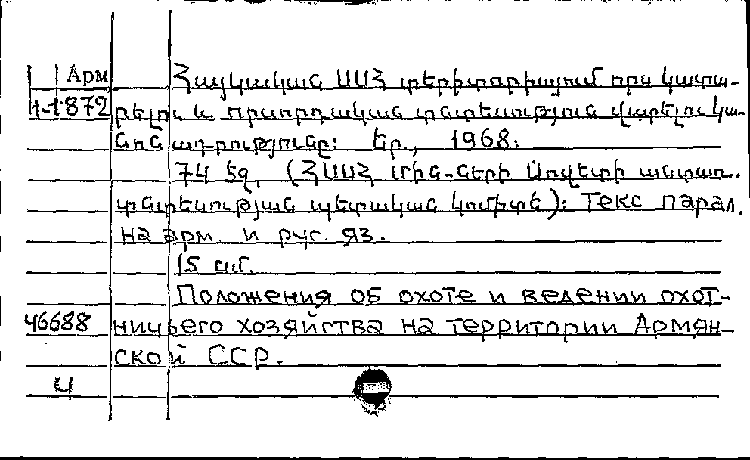 Арм Հայկական ՍՍՀ տերիտորիայում որս կատա-
1-1872 րելու և որսորդական տնտեսություն վարելու կա-
նոնադրությունը: Եր., 1968.
74 էջ, (ՀՍՍՀ Մին-ների Սովետի անտառ.
տնտեսության պետական կոմիտե): Текс парал.
на арм. и рус. яз.
15 սմ.
Положения об охоте и ведении охот-
46688 ничьего хозяйства на территории Армян-
ской ССР.
ч